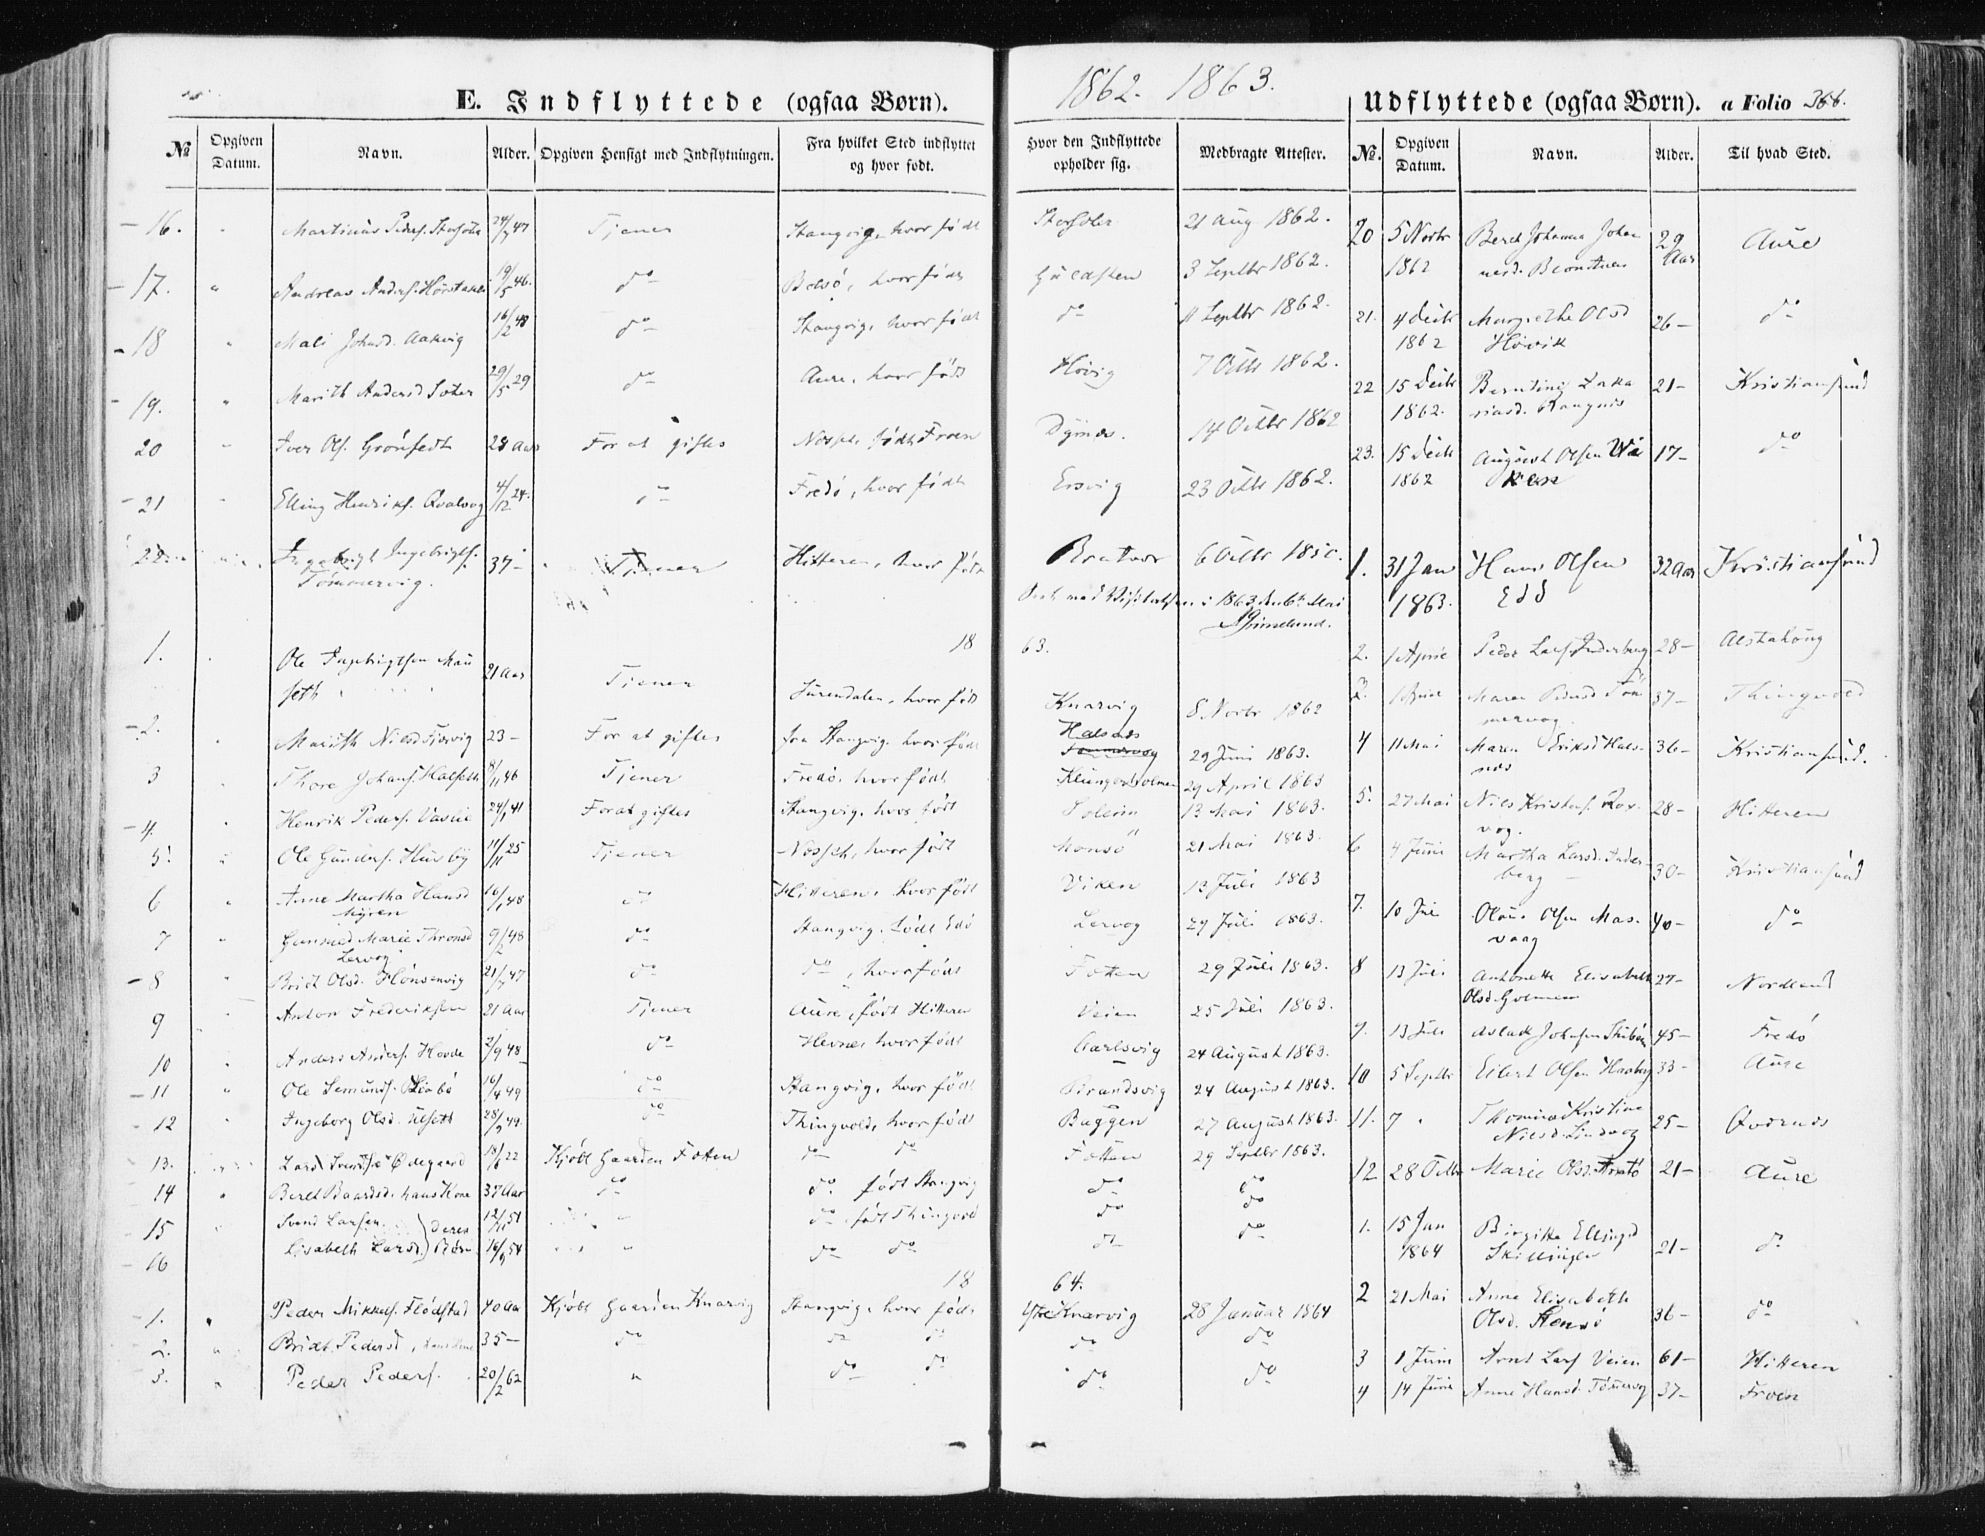 1862. 1863.
E. Indflyttede (ogsaa Børn).
Udflyttede (ogsaa Børn). a Folio 366.
No Opgiven Datum. Navn. Alder. Opgiven Hensigt med Indflytningen. Fra hvilket Sted indflyttet og hvor født. Hvor den Indflyttede opholder sig. Medbragte Attester.
No. Opgiven Datum. Navn. Alder. Til hvad Sted.
16. " Martinus Peders. 24/7 47 Tjener Stangvig, hvor født 21 Aug 1862.
17. " Andreas Anders. 19/5 46. do Bolsø, hvor født 3 Septbr 1862.
18 " Mali Johnsd. Aakvig 16/2 48 do Stangvig, hvor født do 11 Septbr 1862.
19. " Marith Andersd 29/5 29 do Aure, hvor født Hövig 7 Octbr 1862.
20 " Iver Ols. Grönset 28 Aar For at giftes født Froen 14 Octbr 1862
21 " Elling Henriks. Qvalvog 4/12 24. do Fredö, hvor født Ersvig 23 Octbr 1862.
22 Ingebrigt Ingebrigts. Tömmervig. 37 - Tjener Hitteren, hvor født Bratvær 6 Octbr 1850.
i 1863 den 6te Mai
18 63.
1. Ole Ingebrigtsen Mauseth 21 Aar Tjener Surendalen, hvor født Knarvig 8 Novbr 1862
2. " Marith Nilsd 23 - For at giftes fra Stangvig. hvor født Halsnæs 29 Juni 1863.
3 " Thore Johans. Halseth 8/11 46 Tjener Fredö. hvor født Klungerholmen 29 April 1863
4. " Henrik Peders. Vaslie 24/1 41 For at giftes Stangvig, hvor født 13 Mai 1863.
5. " Ole Gunders. Husby 11/11 25 Tjener hvor født Monsö 21 Mai 1863.
6 " Anne Martha Hansd Myren 16/1 48 do Hitteren, hvor født Viken 13 Juli 1863
7 " Gunhild Marie Thronsd Lervog 9/2 48 do Stangvig. født Edö Lervog 29 Juli 1863.
8 " Brit Olsd. Hönsenvig 21/7 47 do do, hvor født Fatten 29 Juli 1863.
9 " Anton Frederiksen 21 Aar Tjener Aure, født Hitteren Veien 25 Juli 1863.
10 " Anders Anders. Hovde 2/9 48 do Hevne, hvor født Carlsvig 24 August 1863.
11 " Ole 16/4 49 do Stangvig, hvor født Strandsvig 24 August 1863.
12 " Ingeborg Olsd. Ulseth 28/9 49. do Thingvold, hvor født Buggen 27 August 1863.
13. Lars Ødegaard 18/6 22 Kjöbt Gaarden Fatten do do Fatten 29 Septbr 1863.
14 " Beret Baardsd. hans Kone 37 Aar do do. født Stangvig do do
15 " Svend Larsen } deres 12/11 51 " do født Thingvold do do
16 Lisabeth Larsd. } Børn 16/9 54 " do do do do
18 64.
1. " Peder Mikkels. Flödstad 40 Aar Kjöbt Gaarden Knarvig Stangvig, hvor født Ytre Knarvig 28 Januar 1864
2. " Bridt Pedersd, hans Kone 35 - do do do do do
3. " Peder Peders. 20/2 62 " do do do do
20 5 Novbr 1862 Beret Johanna Johannesd. 29 Aar Aure
21. 4 Decbr 1862 Margrethe Olsd Hövik 26 - do
22 15 Decbr 1862. Berntine Zakariasd. 21 - Kristiansund
23. 15 Decbr 1862 August Olsen Wiken 17 - do
1. 31 Jan 1863. Hans Olsen Edö 32 Aar Kristiansund
2. 1 April Peder Lars. Inderberg 28 - Alstahoug
3. 1 Maren Tömmervog. 37 - Thingvold
4 11 Mai Maren Eriksd Halsnæs 36 - Kristiansund.
5. 27 Mai Nils Kristofs. Roxvog. 28 - Hitteren
6 4 Juni Martha Larsd. Inderberg 30 - Kristiansund
7. 10 Juli Olaus Olsen Masvaag 40 - do
8 13 Juli Antonette Elisabeth Olsd. Holmen 27 - Nordland
9. 13 Juli Aslak Johnsen 45 - Fredö
10 5 Septbr Eilert Olsen 33 - Aure
11. 7 " Kristine Nilsd. Lindvog 25 - Qvernæs
12 28 Octbr Marie Olsd. 21 - Aure
1. 15 Jan 1864 Birgitte Ellingsd Skillingen 21 - do
2 21 Mai Anne Elisabeth Olsd. 36 - do
3 1 Juni Arnt Lars Veien 61 - Hitteren
4 14 Juni Anne Hansd. Tömervog 37 - Froen